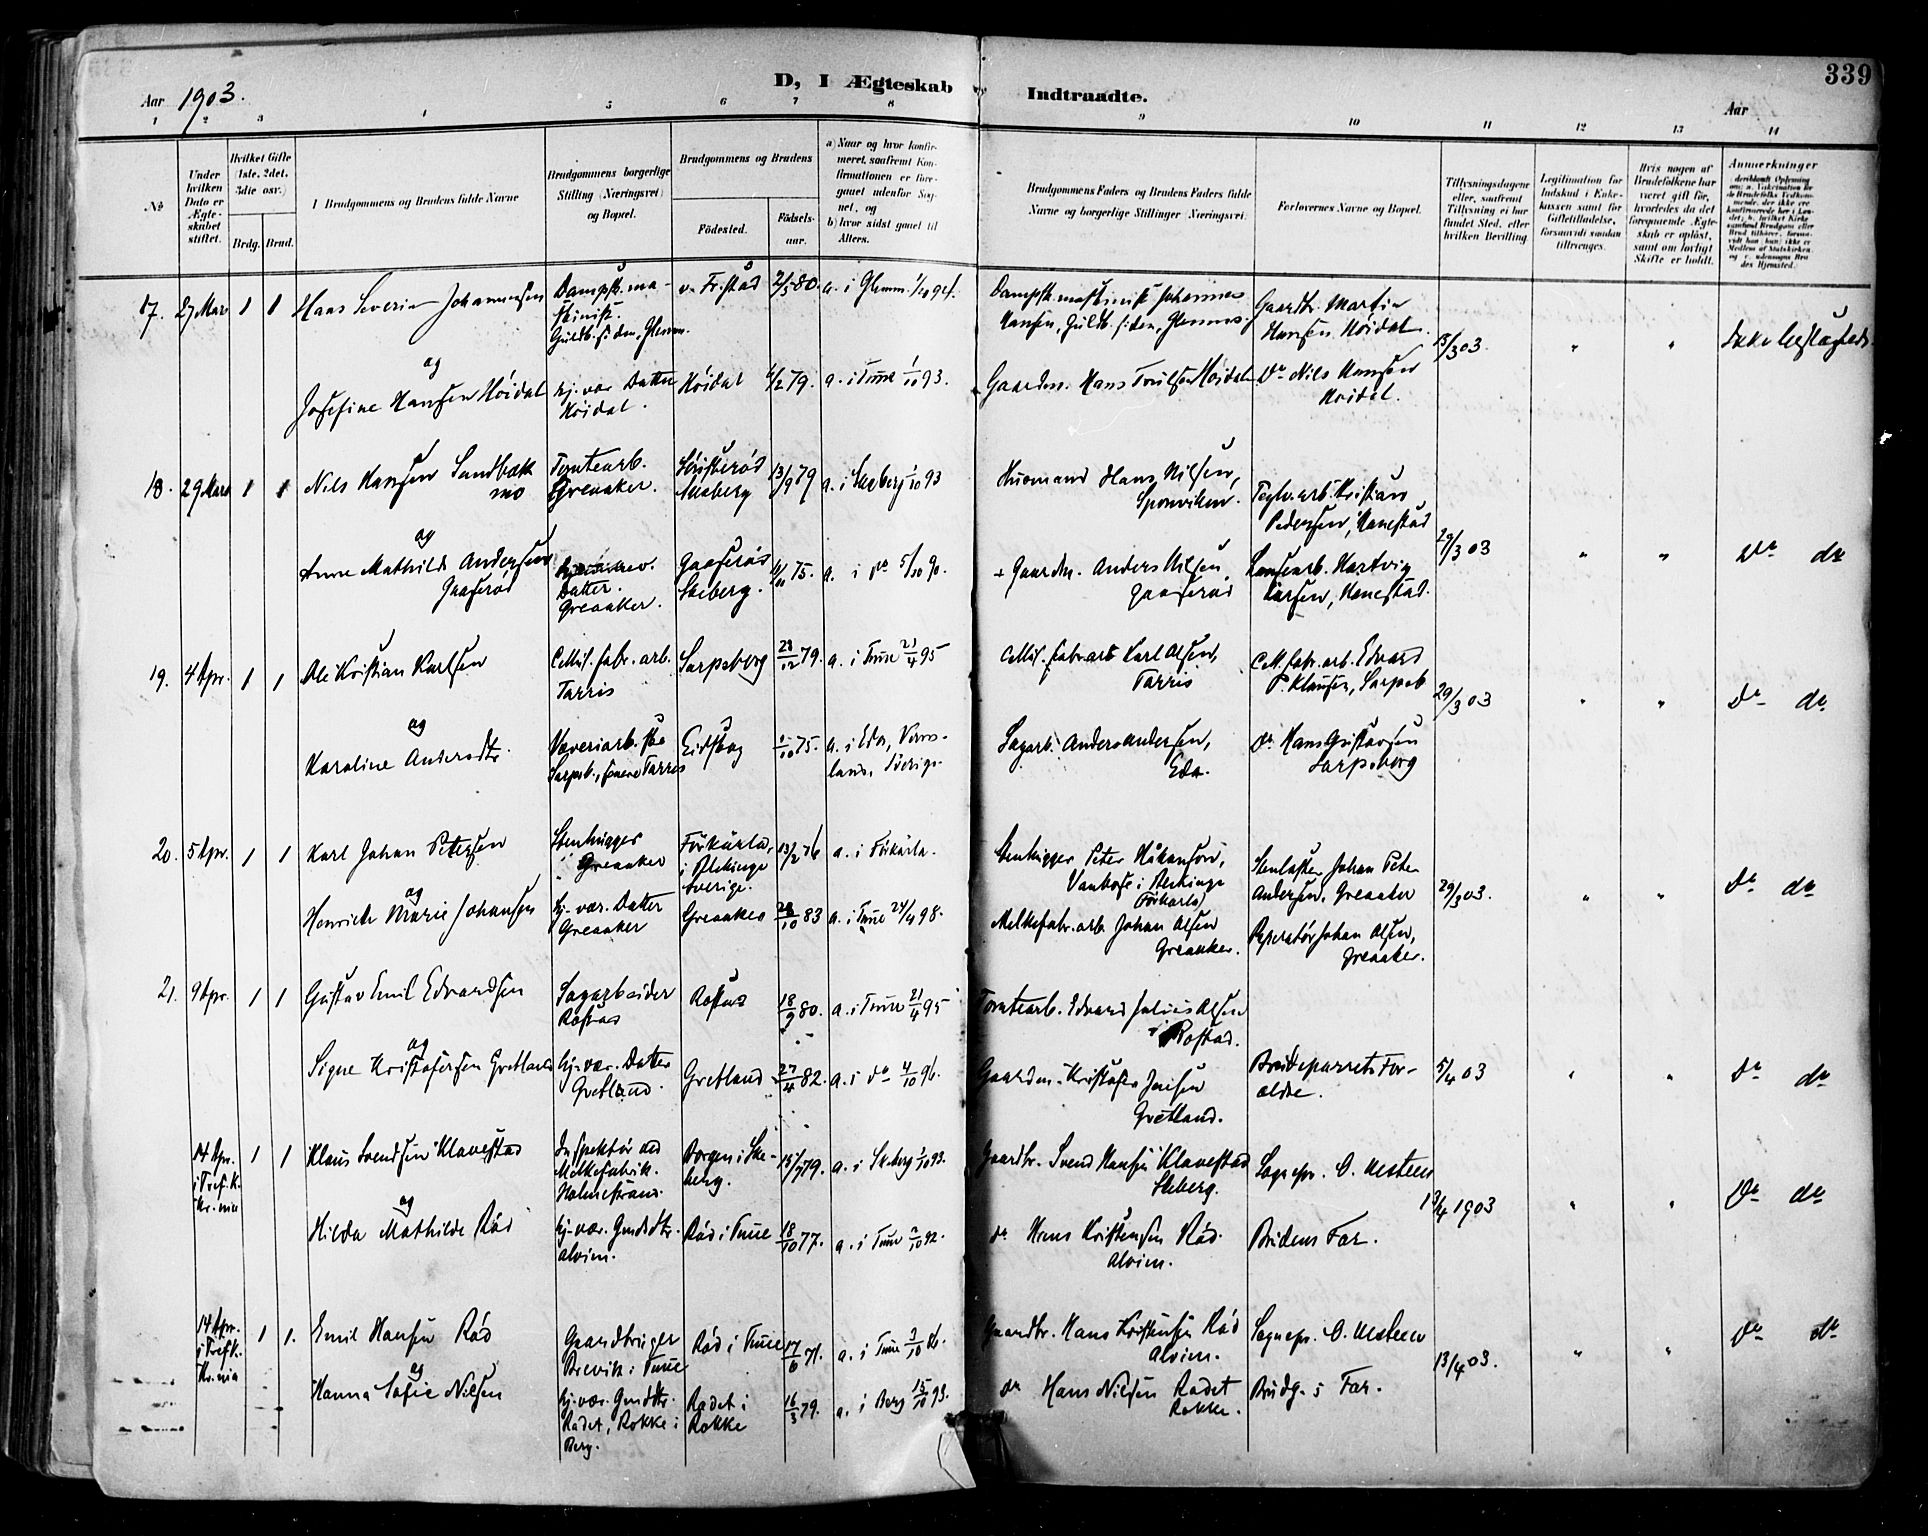 339
Aar 1903.
D, I Ægteskab Indtraadte.
Aar
1 2 3 4 5 6 7 8 9 10 11 12 13 14
No
Under hvilken Dato er Ægteskabet stiftet.
Hvilket Gifte (1ste, 2det, 3die osv.)
Brdg. Brud.
Brudgommens og Brudens fulde Navne
Brudgommens borgerlige Stilling (Næringsvei) og Bopæl.
Brudgommens og Brudens
Födested.
Födselsaar.
a) Naar og hvor konfirmeret, saafremt Konfirmationen er foregaaet udenfor Sognet, og b) hvor sidst gaaet til Alters.
Brudgommens Faders og Brudens Faders fulde Navne og borgerlige Stillinger (Næringsvei).
Forlovernes Navne og Bopæl.
Tillysningsdagene eller, saafremt Tillysning ei har fundet Sted, efter hvilken Bevilling
Legitimation for Indskud i Enkekassen samt for Giftetilladelse, forsaavidt saadan tiltrænges.
Hvis nogen af Brudefolkene har været gift før, hvorledes da det foregaaende Ægteskab er oplöst, samt om lovligt Skifte er holdt.
Anmerkninger
17. 27 Mars 1 1 Hans Severin Johannesen
Dampsk.maskinist. Guldb.siden, Glemm.
v. Fr.stad 2/5 80. a. i Glemm. 1/10 94.
Dampsk.maskinist Johannes Hansen, Guldb.siden, Glemmen.
Gaardbr. Martin Hansen Höidal.
13/3 03. " "
og
Josefine Hansen Höidal
hj. vær. Datter Höidal.
Höidal 4/2 79. a. i Tune 1/10 93.
Gaardm. Hans Truelsen Höidal
Do Nils Hansen Höidal.
18. 29 Mars 1 1 Nils Hansen Sandbækmo
Tomtearb. Greaaker.
Skeberg 13/9 79 a. i Skeberg 1/10 93
Husmand Hans Nilsen, Sponviken.
Teglv.arb. Kristian Pedersen, Hanestad
29/3 03 " " Do do
og
Anne Mathilde Andersen Gaaserød
Datter. Greaaker.
Gaaserød Skeberg. 11/11 75. a. i do 5/10 90.
+ Gaardm. Anders Nilsen, Gaaserød
Hartvig Larsen, Hanestad.
19. 4 Apr. 1 1 Ole Kristian Karlsen
Cellul. fabr. arb. Tarris
Sarpsborg 28/12 79. a. i Tune 21/4 95
Cellul. fabr. arb Karl Olsen, Tarris
Cell. fabr. arb. Edvard P. Klausen, Sarpsb
29/3 03 " " Do do.
og
Karoline Andersdtr.
Væveriarb.ske Sarpsb., senere Tarris
Eidskog 1/10 75. a. i Eda, Vermland, Sverige.
Sagarb. Anders Andersen, Eda.
do. Hans Gustavsen Sarpsborg
20. 5 Apr. 1 1 Karl Johan Petersen
Stenhugger Greaaker
Förkärla, i Blekinge Sverige. 13/2 76 a. i Förkärla.
Stenhugger Peter Håkanson, i Blekinge (Förkärla)
Johan Peter Andersen, Greaaker
29/3 03. " " Do do
og
Henriette Marie Johansen
hj. vær. Datter Greaaker
Greaaker 28/10 83 a. i Tune 24/4 98.
Melkefabr.arb. Johan Olsen Greaaker.
Reparatør Johan Olsen, Greaaker.
21. 9 Apr. 1 1 Gustav Emil Edvardsen
Sagarbeider Rostad
Rostad 18/9 80. a. i Tune 21/4 95
Tomtearb. Edvard Julius Olsen Rostad.
og
Signe Kristofersen Gretland
hj. vær. Datter Gretland.
Gretland 27/4 82. a. i do 4/10 96.
Gaardm. Kristofer Jensen Gretland.
Brudeparrets Forældre.
5/4 03 " " Do do
14 Apr. i Tref. K. Kr.nia 1 1 Klaus Svendsen Klavestad
Inspektør ved Melkefabrik. Holmestrand.
Borgen i Skeberg. 15/7 79. a. i Skeberg 1/10 93.
Gaardbr. Svend Hansen Klavestad Skeberg.
Sognepr. O. Utsteen
13/4 1903 " " Do do
og
Hilda Mathilde Rød
hj. vær. Gmdsdtr. Alvim.
Rød i Tune 18/10 77. a. i Tune 2/10 92.
do Hans Kristensen Rød Alvim.
Brudens Far.
14 Apr. i Tref. K. Kr.nia 1 1. Emil Hansen Rød
Gaardbruger Brevik i Tune
Rød i Tune 17/6 71. a. i Tune 3/10 86.
Gaardbr. Hans Kristensen Rød Alvim.
Sognepr. O. Utsteen
13/4 03. " " Do do
og
Hanna Sofie Nilsen
hj. vær. Gmdsdtr. Radet, Rokke i Berg.
Radet i Rokke 16/3 79. a. i Berg 15/10 93.
do Hans Nilsen Radet Rokke.
Brudg.s Far.